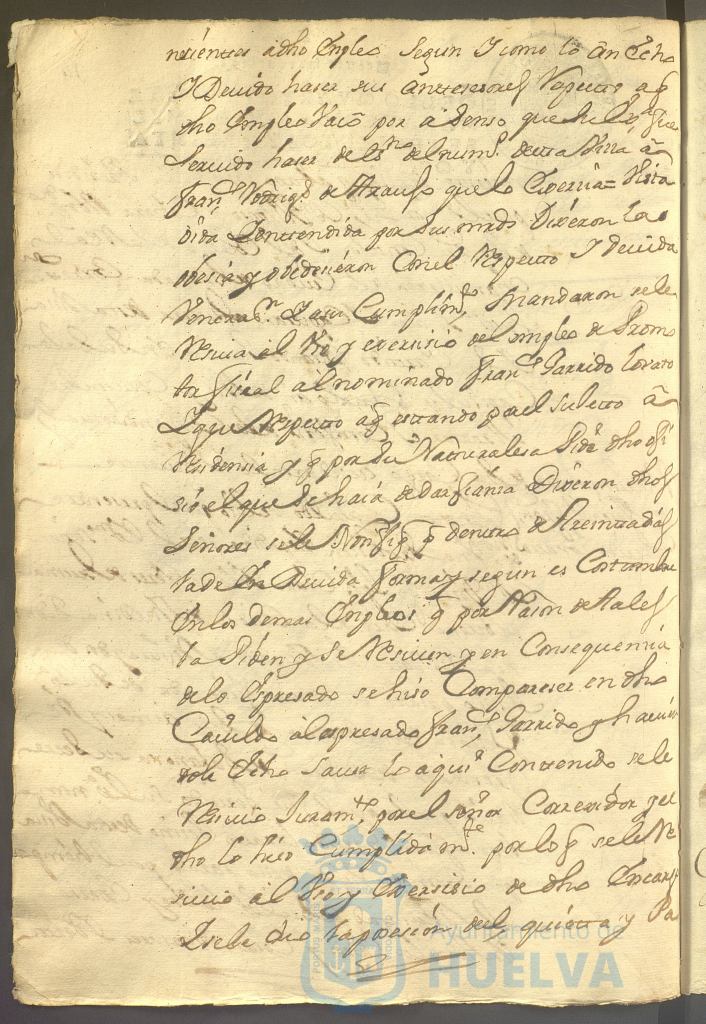 nesientes a dho Enpleo Segun Y como lo an Echo
Y Devido haser sus antesesores Respecto a q
dho Empleo Vacó por
Servido haser de Es.no del num.o desta Villa a
Fran.co Rodrig.s de Araujo que lo Exersia = Vista
Oida Y entendida por sus mrds Dixeron la
obesian y obedesieron Con el Respecto Y devida
Venera.on Y asu Cumplim.to Mandaron se le
Resiva al Uso y exersisio del empleo de Promo
tor fiscal al nominado Fran.co Garrido Lovato
Y que Respecto a q estando por el sugeto a
Residensia y q por su Naturalesa Pide dho ofi
sio el que se haia de dar fiansa Dixeron dhos
Señores se le Notifiq q dentro de treinta dias
la de En Devida forma y segun es Costumbre
En los demas Enpleos q por Rason de tales
la Piden y se Resiven y en Consequensia
de lo Espresado se hiso Compareser en dho
Cavildo al espresado Fran.co Garrido y hasien
dole Echo Saver lo aqui Contenido se le
Resivio Juram.to por el señor Correxidor y el
dho lo hiso Cumplidam.te por lo q se le Re
sivio al Uso y Exersisio de dho Encargo
Y se le dio la posesion de el quieta y Pa
Ayuntamiento de
HUELVA